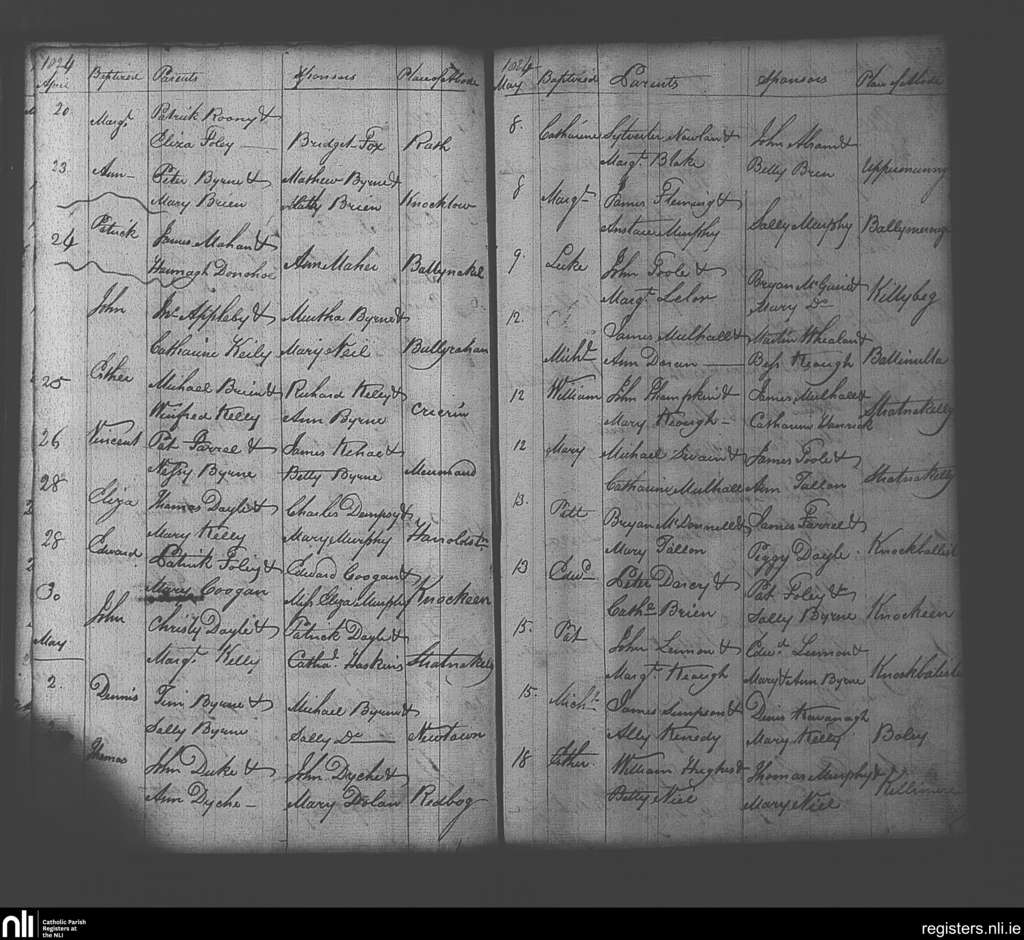 1824
April Baptized Parents Sponsors Place of Abode
20 Margt. Patrick Roony &
Eliza Foley Bridget Fox Rath
23 Ann Peter Byrne & Mathew Byrne &
Mary Brien Brien Knocklow
24 Patrick James Mahan &
Hannagh Donohoe Ann Maher Ballynakil
John Jno. Appleby & Murtha Byrne &
Catharine Keily Mary Neil Ballyraham
25 Esther Michael Brien & Richard Kelly &
Winifred Kelly Ann Byrne
26 Vincent Pat Farrel & James Kehoe &
Nessy Byrne Betty Byrne
28 Eliza Thomas Doyle & Charles Dempsy &
Mary Kelly Mary Murphy Haroldstn
28 Edward Patrick Foley & Edward Coogan &
Mary Coogan Miss Eliza Murphy Knockeen
30 John Christy Doyle & Patrick Doyle &
Margt. Kelly Catha. Haskins Stratnakelly
May
2. Dennis Tim Byrne & Michael Byrne &
Sally Byrne Sally Do Newtown
Thomas John Duke & John Dyche &
Ann Dyche Mary Dolan Redbog
1824
May Baptized Parents Sponsors Place of Abode
8. Catharine Sylvester Newlan & John &
Margt. Blake Betty Brien
8 Margt. James Fleming &
Anstace Murphy Sally Murphy
9. Luke John Toole & Bryan McGuire &
Margt. Lelor Mary Do Killybeg
12. Michl. James Mulhall & Martin Whealan &
Ann Doran Bess Keough
12 William John Thompkin & James Mulhall &
Mary Keough Catharine Stratnakelly
12 Mary Michael Swain & James Toole &
Catharine Mulhall Ann Tallon Stratnakelly
13. Bryan McDonnell & James Farrell &
Mary Tallon Peggy Doyle
13 Edwd. Peter Darcy & Pat Foley &
Catha. Brien Sally Byrne Knockeen
15. Pat John Lennon & Edwd. Lennon &
Margt. Keough Mary & Ann Byrne
15. Michl. James Simpson & Denis Kavanagh
Ally Kenedy Mary Kelly Boley
18 Esther. William Hughes & Thomas Murphy &
Betty Niel Mary Niel
nli Catholic Parish
Registers at
the NLI
registers.nli.ie